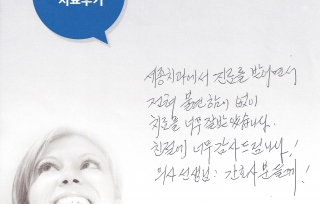 치료후기
세종치과에서 진료를 받으면서
전혀 불편함이 없이
치료를 너무 잘받았습니다.
친절에 너무 감사드립니다!
의사선생님: 간호사분들께!